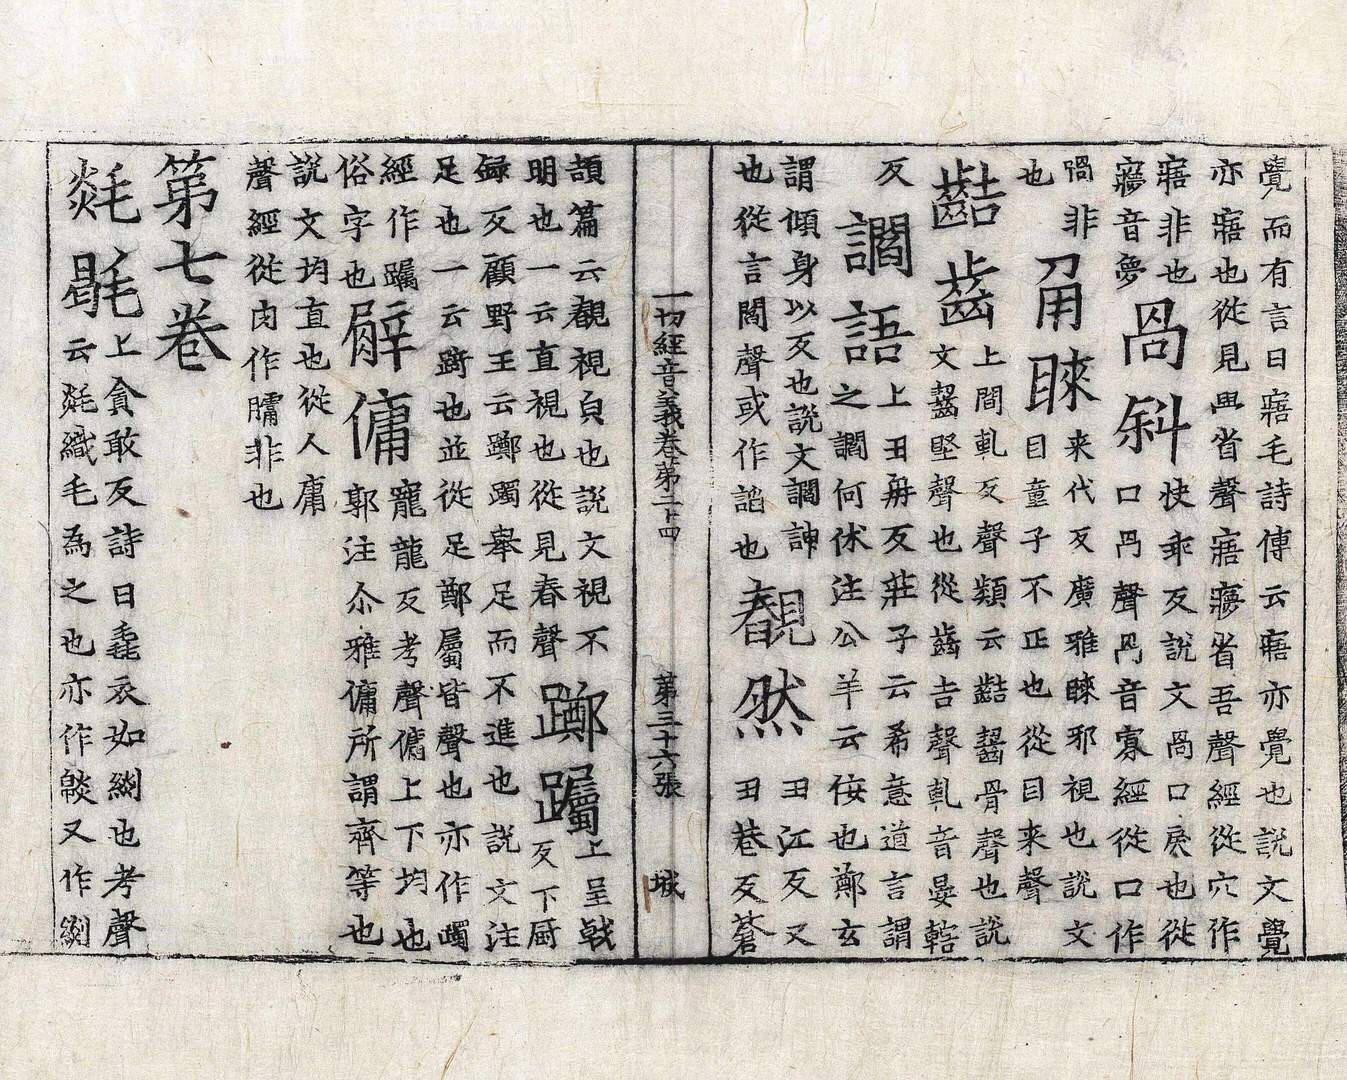 覺而有言曰寤毛詩傳云寤亦覺也説文覺
亦寤也從見𦥯省聲寤㝱省吾聲經從穴作
寤非也
㝱音夢
咼斜
快乖反説文咼口戾也從
口冎聲冎音寡經從口作
喎非
也
角睞
来代反廣雅睞邪視也説文
目童子不正也從目来聲
𪘂齒
上間軋反聲類云𪘂齧骨聲也説
文齧堅聲也從齒吉聲軋音晏轄
反
讇語
上丑冄反莊子云希意道言謂
之讇何休注公羊云侫也鄭玄
謂傾身以反也説文讇諛
也從言閻聲或作諂也
覩然
丑江反又
丑巷反蒼
頡篇云覩視皃也説文視不
明也一云直視也從見舂聲
躑躅
上呈戟
反下厨
録反顧野王云躑躅舉足而不進也説文注
足也一云蹢也並從足鄭屬皆聲也亦作躅
經作躅
俗字也
𦡀傭
寵龍反考聲傭上下均也
郭注尒雅傭所謂齊等也
説文均直也從人庸
聲經從肉作𦡀非也
第七卷
毯㲪
上貪敢反詩曰毳衣如緂也考聲
云毯織毛為之也亦作㲜又作緂
一切經音義卷第二十四 第三十六張 城